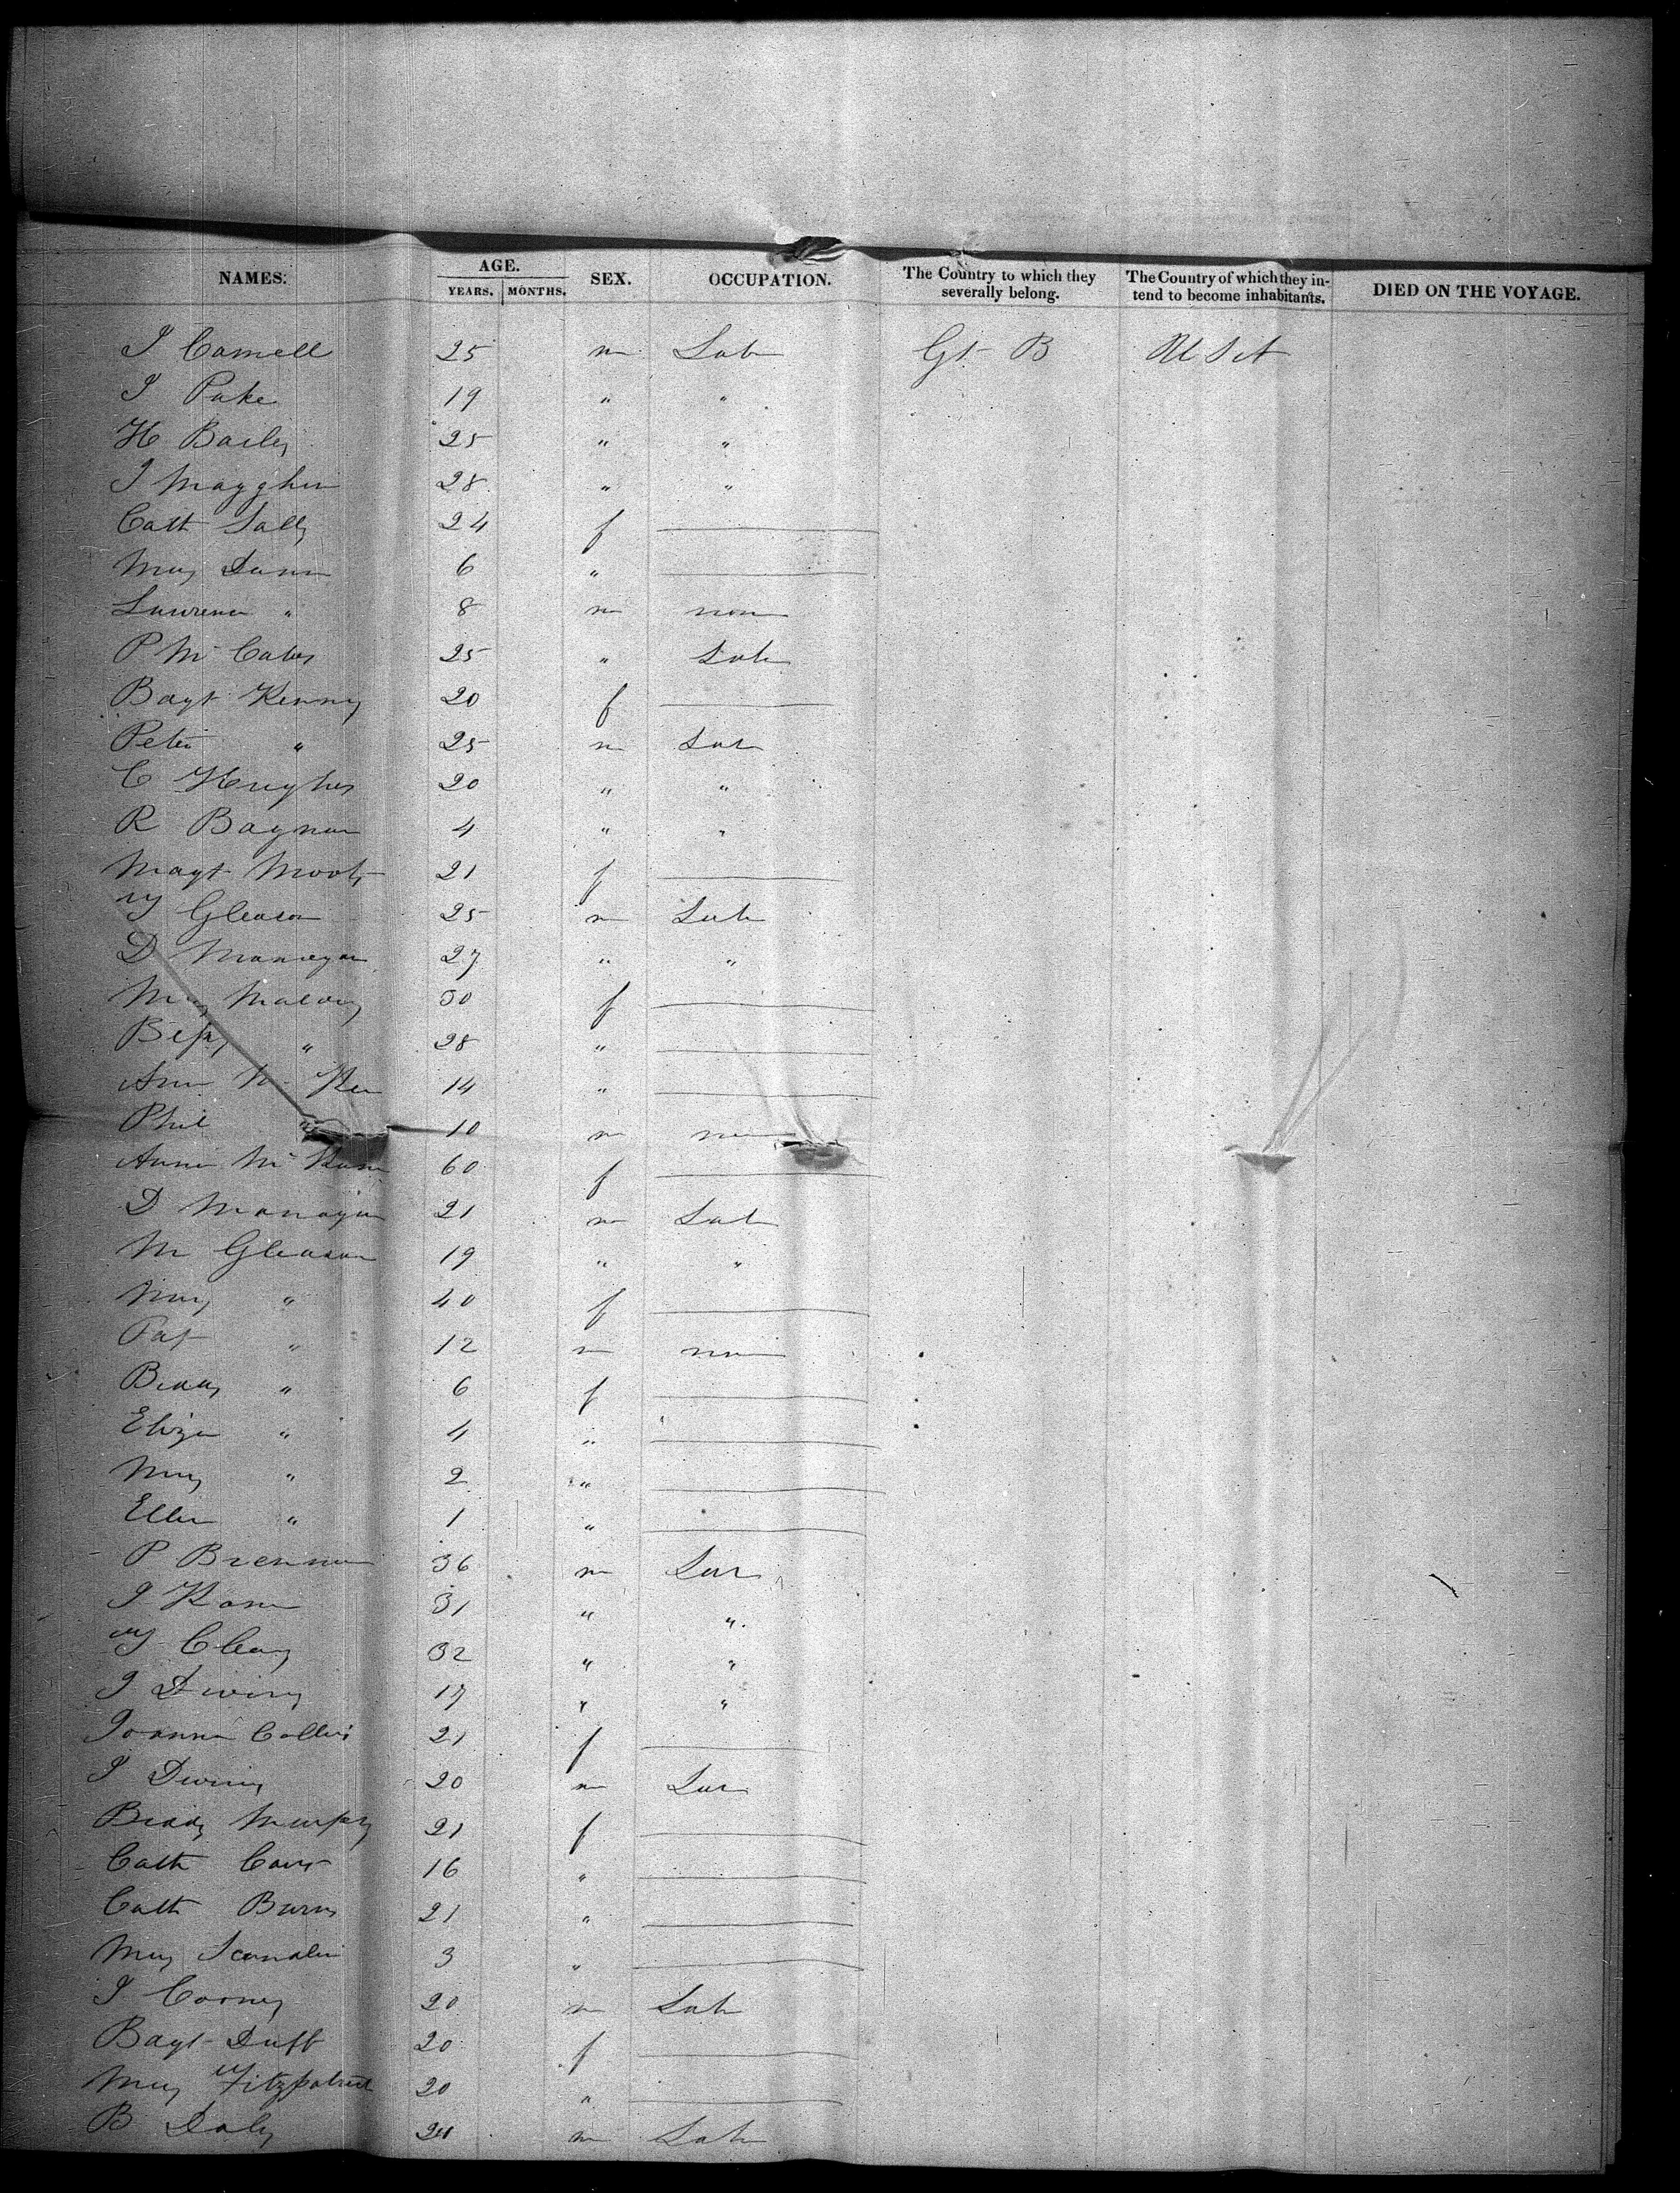 NAMES. AGE. SEX. OCCUPATION. The Country to which they severally belong. The Country of which they intend to become inhabitants. DIED ON THE VOYAGE.
YEARS. MONTHS.
J Camell 25 m Lab Gt B U S A
J Pake 19 " "
H Baily 25 " "
J Magghin 28 " "
Cath Lally 24 f
Mary Dunn 6 "
Lawrence " 8 m non
P Mc Cabe 25 " Lab
Bagt Kenny 20 f
Peter " 25 m Lab
C Hughes 20 " "
R Bagnan 4 " "
Magt 21 f
Gleason 25 m Lab
D 27 " "
Mary Malony 30 f
Bessy " 28 "
Ann Mc Kee 14 "
Phil " 10 m non
Anne Mc 60 f
D Managan 21 m Lab
M Gleason 19 " "
Mary " 40 f
Pat " 12 m non
Biddy " 6 f
Eliza " 4 "
Mary " 2 "
Ellen " 1 "
P Brennan 36 m Lab
J Kane 31 " "
Cleary 32 " "
J Diviny 17 " "
Joanna Collins 21 f
J Diviny 20 m Lab
Biddy Murphy 21 f
Cath 16 "
Cath Burns 21 "
Mary Scanalin 3 "
J Cooney 20 m Lab
Bagt Duff 20 f
Mary Fitzpatrick 20 "
B Daly 24 m Lab